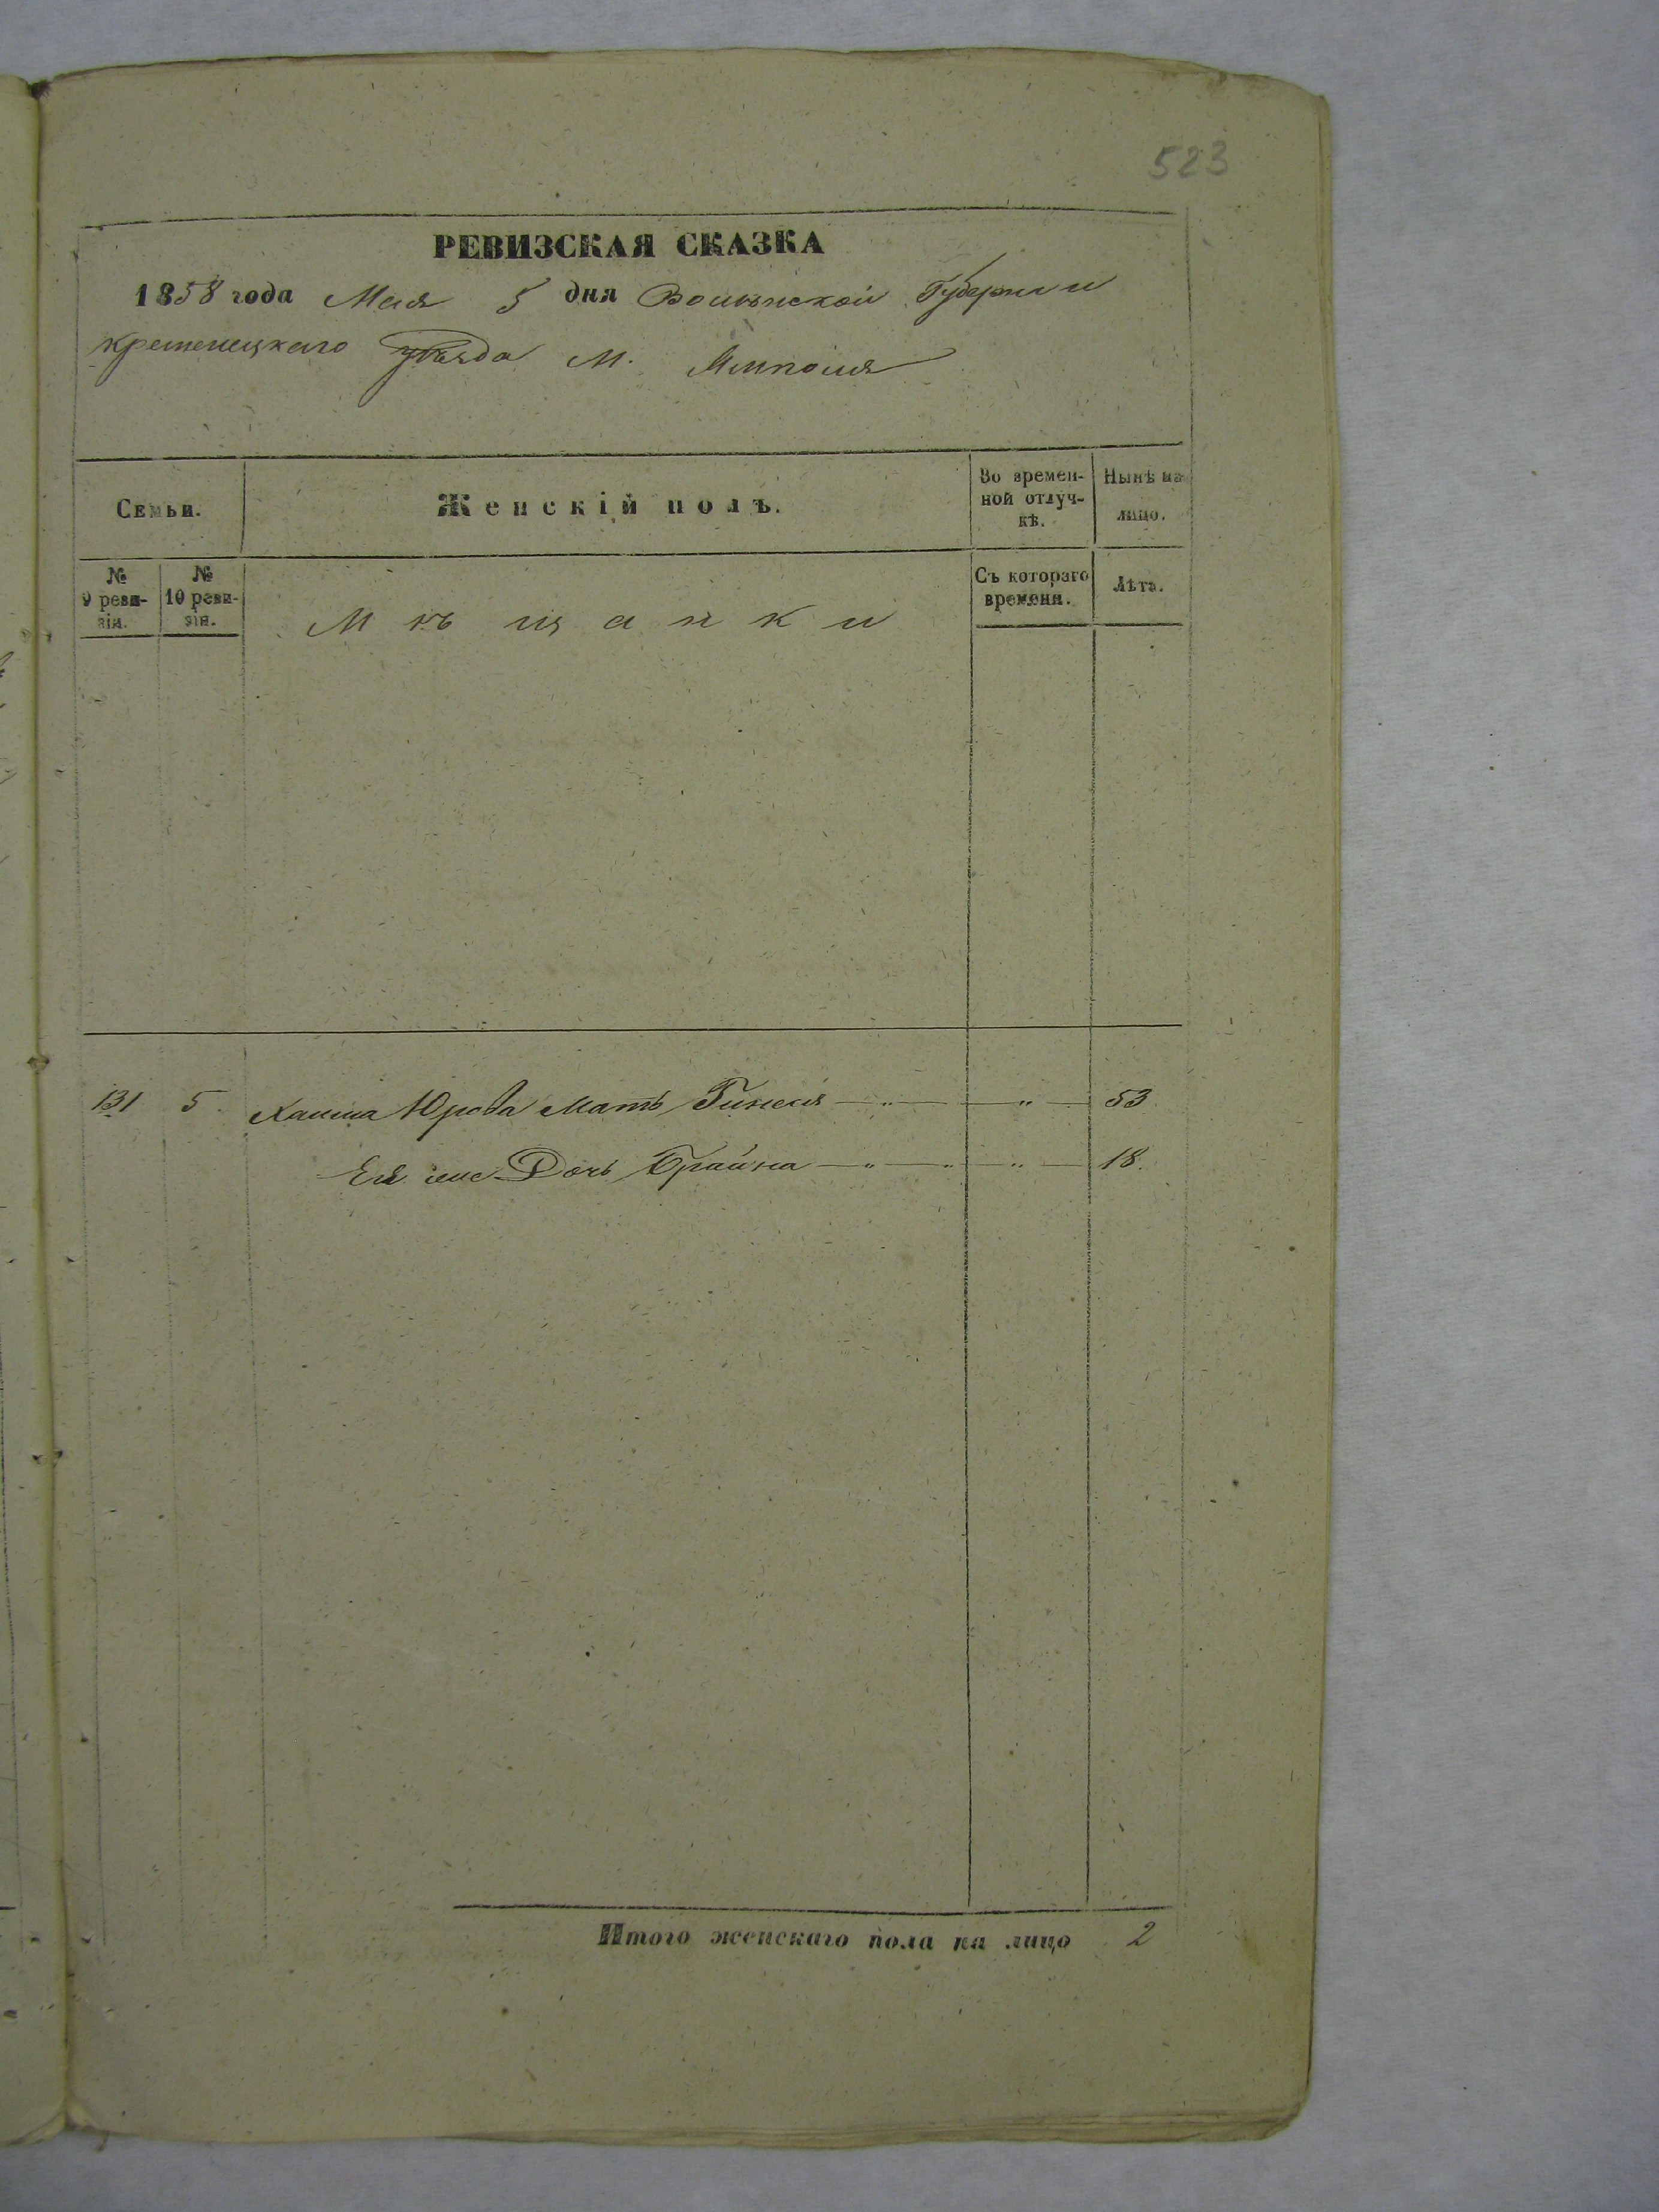 523
РЕВИЗСКАЯ СКАЗКА
1858 года Мая 5 дня Волынской Губернии
Кременецкаго уѣзда М. Ямполя
Семьи.
Женскій полъ.
Во времен-
ной отлуч-
кѣ.
Нынѣ на
лицо.
№
9 реви-
зіи.
№
10 реви-
зіи.
Мѣщанки
Съ котораго
времени.
Лѣта.
131 5. Юрова Мать — „ — „ — 53
Ея же Дочь Брайна — „ — „ — „ — 18.
Итого женскаго пола на лицо 2